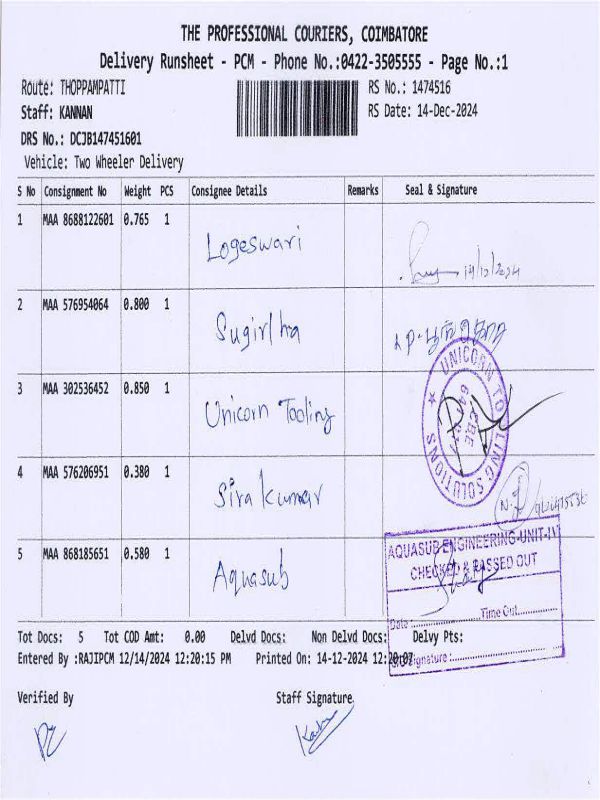 THE PROFESSIONAL COURIERS, COIMBATORE
Delivery Runsheet - PCM - Phone No.:0422-3505555 - Page No.:1
Route: THOPPAMPATTI
RS No.: 1474516
Staff: KANNAN
RS Date: 14-Dec-2024
DRS No.: DCJB147451601
Vehicle: Two Wheeler Delivery
S No Consignment No Weight PCS Consignee Details Remarks Seal & Signature
1 MAA 8688122601 0.765 1 Logeswari 14/12/2024
2 MAA 576954064 0.800 1
3 MAA 302536452 0.850 1 Unicorn Tooling
UNICORN TOOLING SOLUTIONS
CBE
4 MAA 576206951 0.380 1 Siva kumar
5 MAA 868185651 0.580 1 Aquasub
AQUASUB ENGINEERING-UNIT-IV
CHECKED & PASSED OUT
Date : Time Out
Signature :
Tot Docs: 5 Tot COD Amt: 0.00 Delvd Docs: Non Delvd Docs: Delvy Pts:
Entered By :RAJIPCM 12/14/2024 12:20:15 PM Printed On: 14-12-2024 12:20:07
Verified By Staff Signature